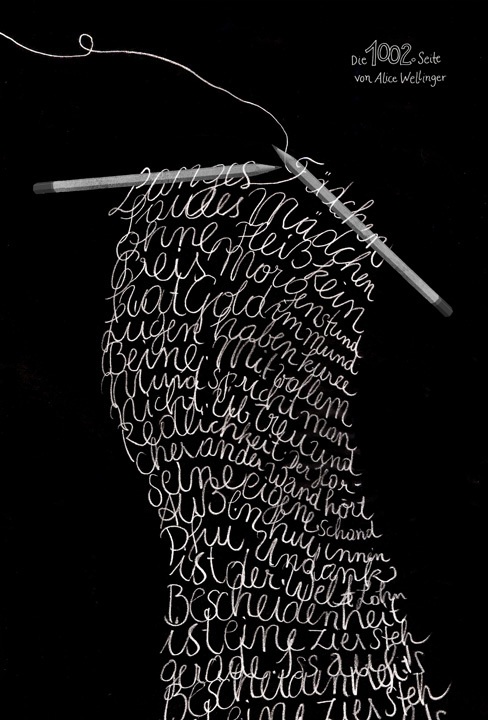 Die 1002. Seite
von Alice Wellinger
Langes Fädchn
Faules Mädchn
Ohne Fleiß kein
Preis Morgenstund
hat Gold im Mund
Lügen haben kurze
Beine. Mit vollem
Mund spricht man
nicht Üb treu und
Redlichkeit Der Hor-
cher an der Wand hört
seine eigene Schand
Außen hui innen
Pfui Undank
ist der Welt Lohn
Bescheidenheit
ist eine Zier Steh
gerade. Iss
Bescheidenheit
eine Zier Steh